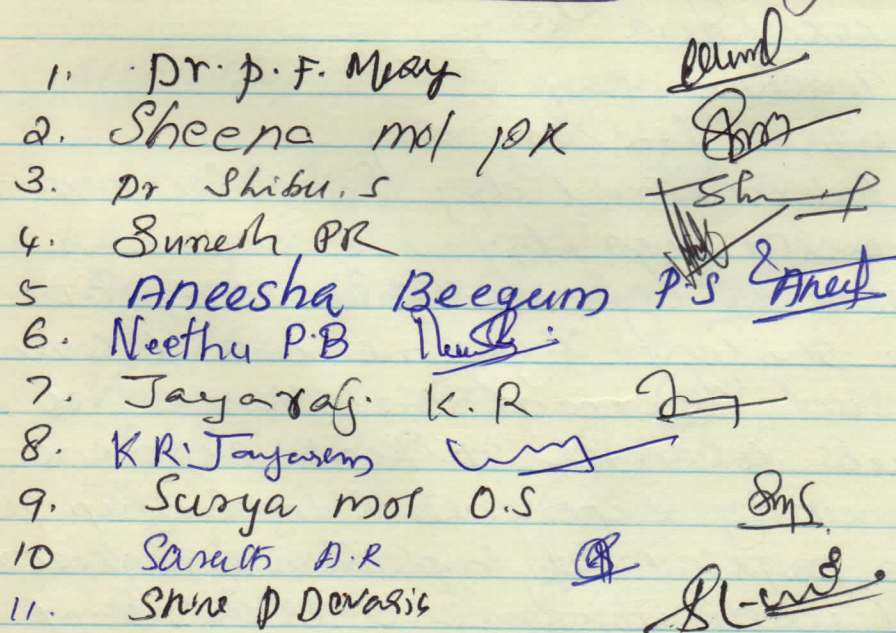 1. Dr. P. F. Mery
2. Sheena mol P K
3. Dr Shibu. S
4. Suresh PR
5 Aneesha Beegum P.S Aneesh
6. Neethu P.B
7. Jayaraj. K. R
8. K R. Jayaram
9. Surya mol O.S
10 Sarath A.R
11. Shine P Devasia